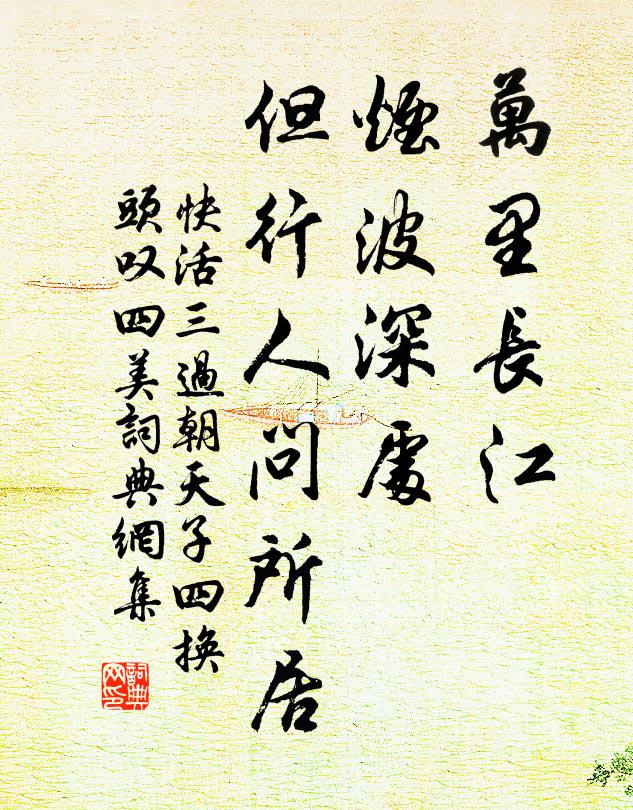 萬里長江
煙波深處
但行人問所居
快活三過朝天子四換
頭叹四美詞典網集
詞典
网印